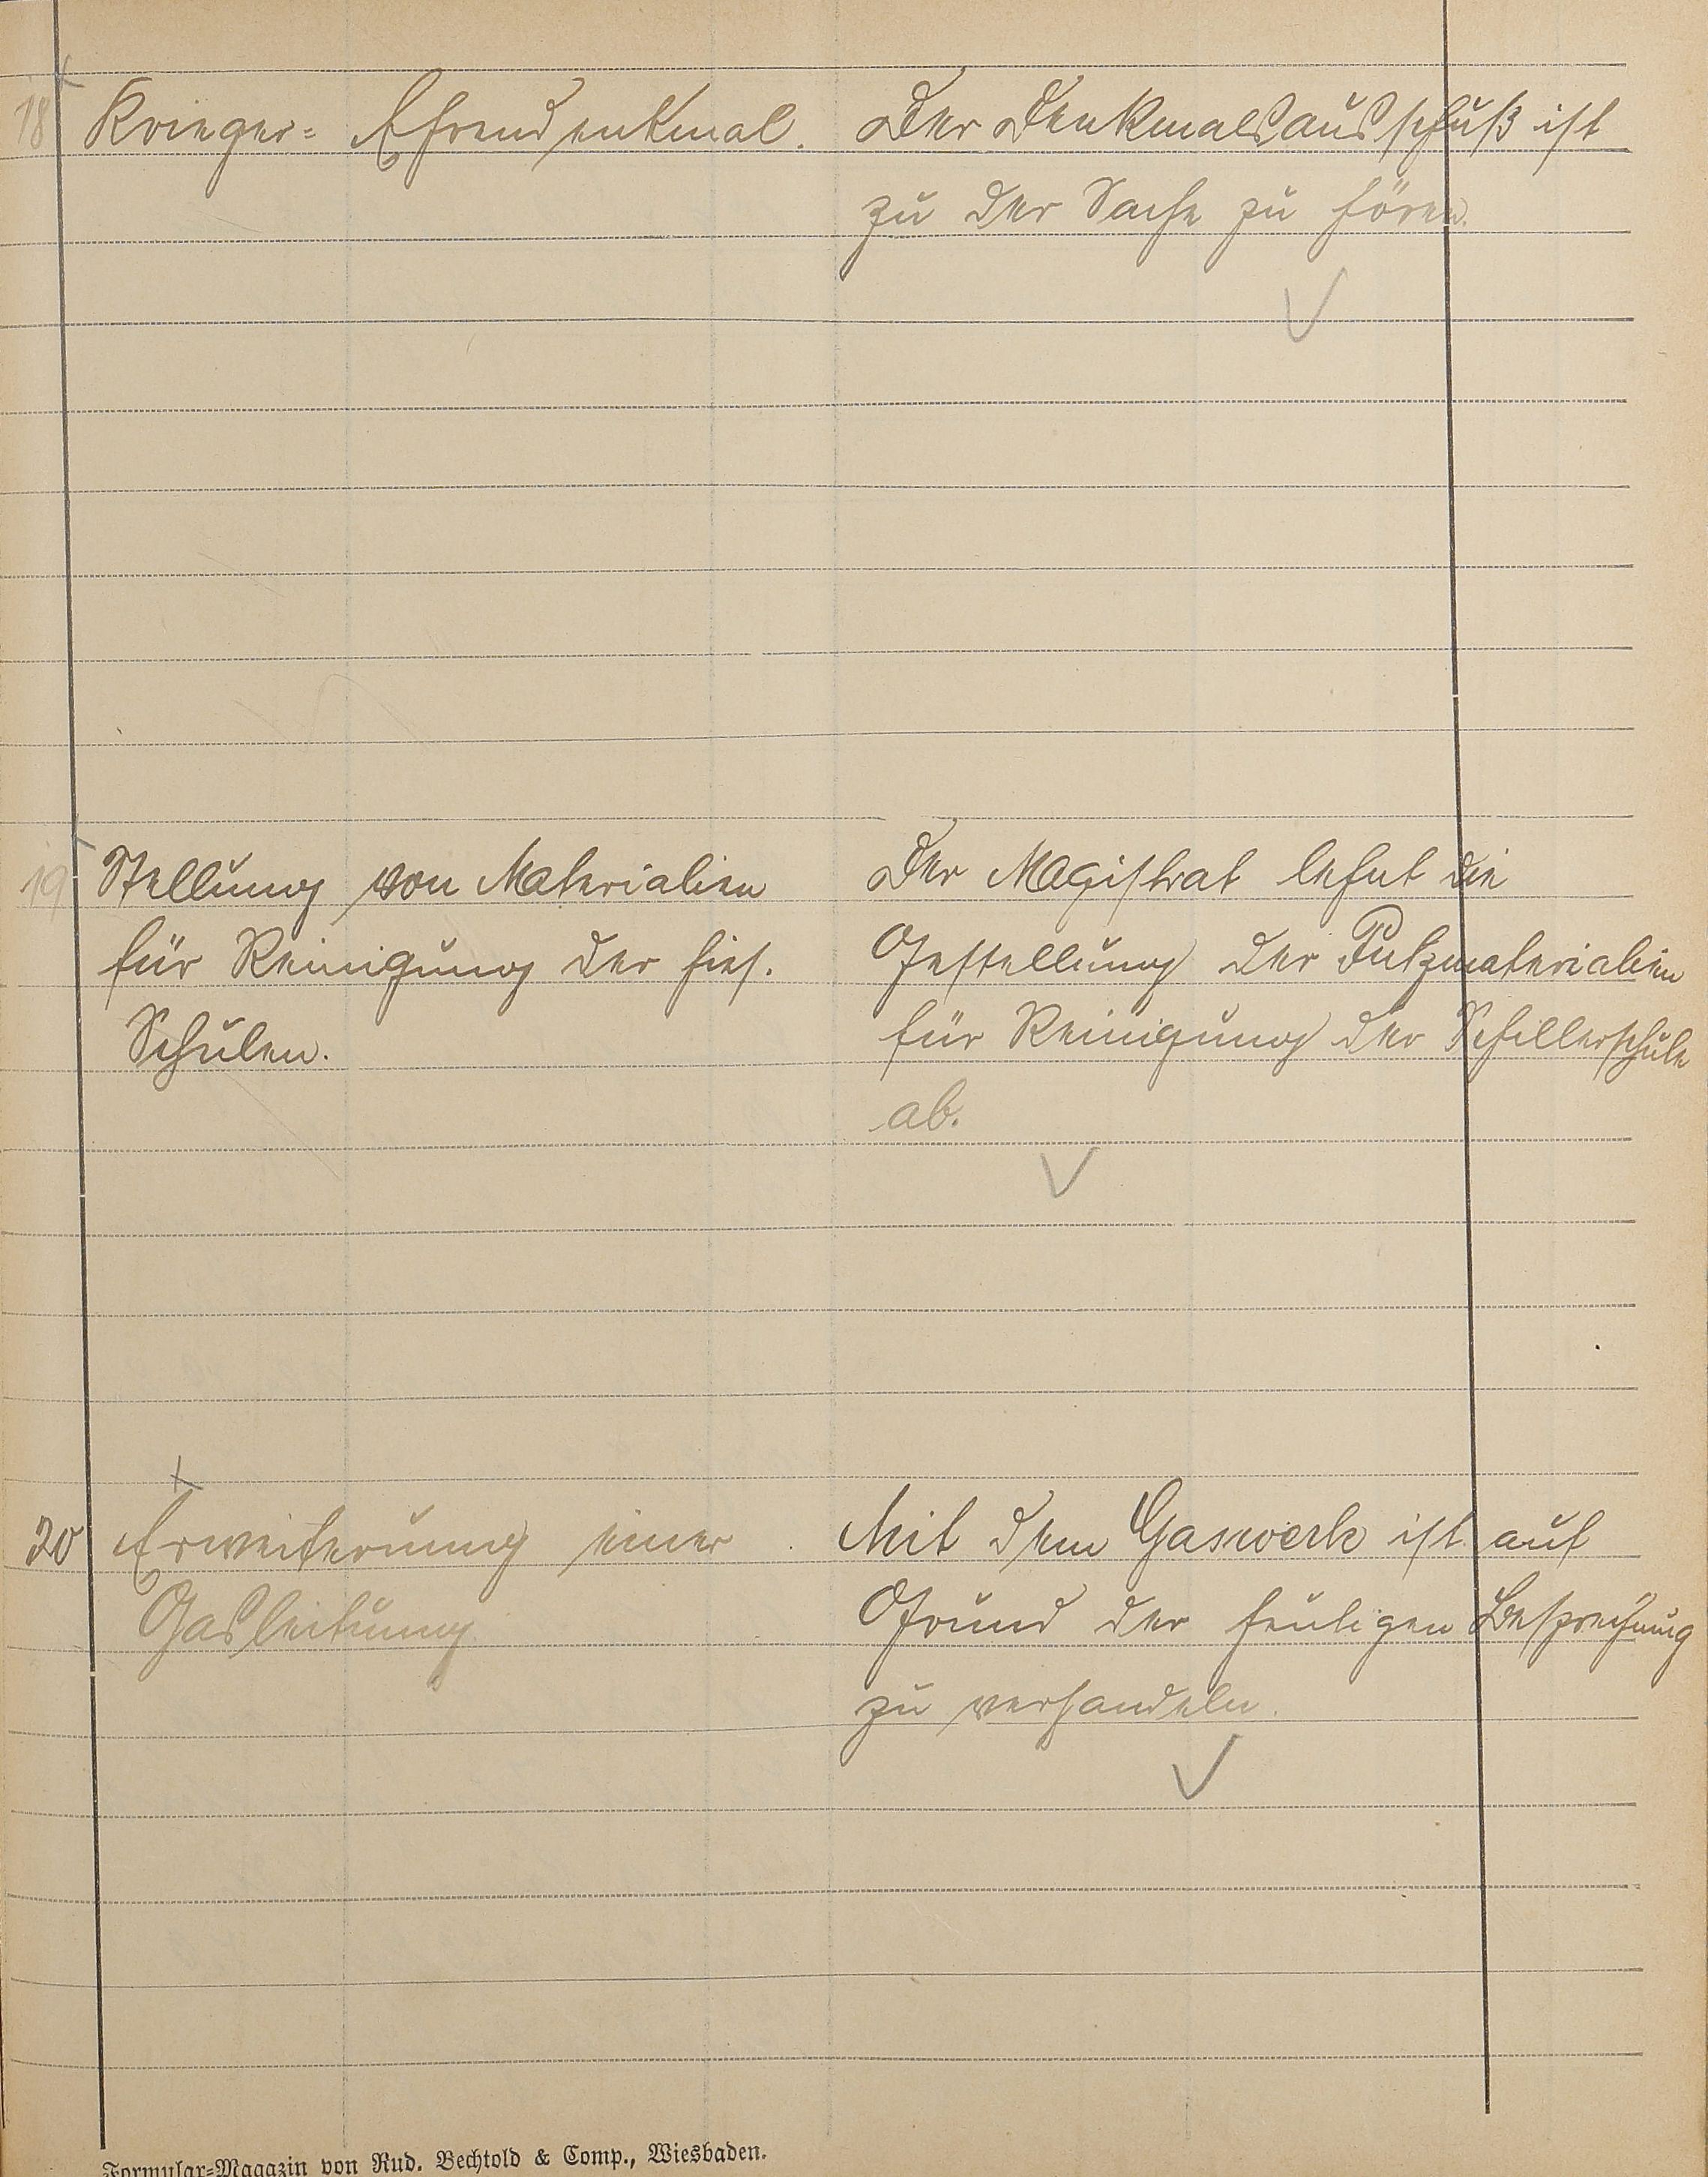 18 Krieger= Ehrendenkmal.
Der Denkmalsausschuß ist
zu der Sache zu hören.
19 Stellung von Materialien
für Reinigung der hies.
Schulen.
Der Magistrat lehnt die
Gestellung der Putzmaterialien
für Reinigung der Schillerschule
ab.
20 Erweiterung einer
Gasleitung
Mit dem Gaswerk ist auf
Grund der heutigen Besprechung
zu verhandeln.
Formular=Magazin von Rud. Bechtold & Comp., Wiesbaden.